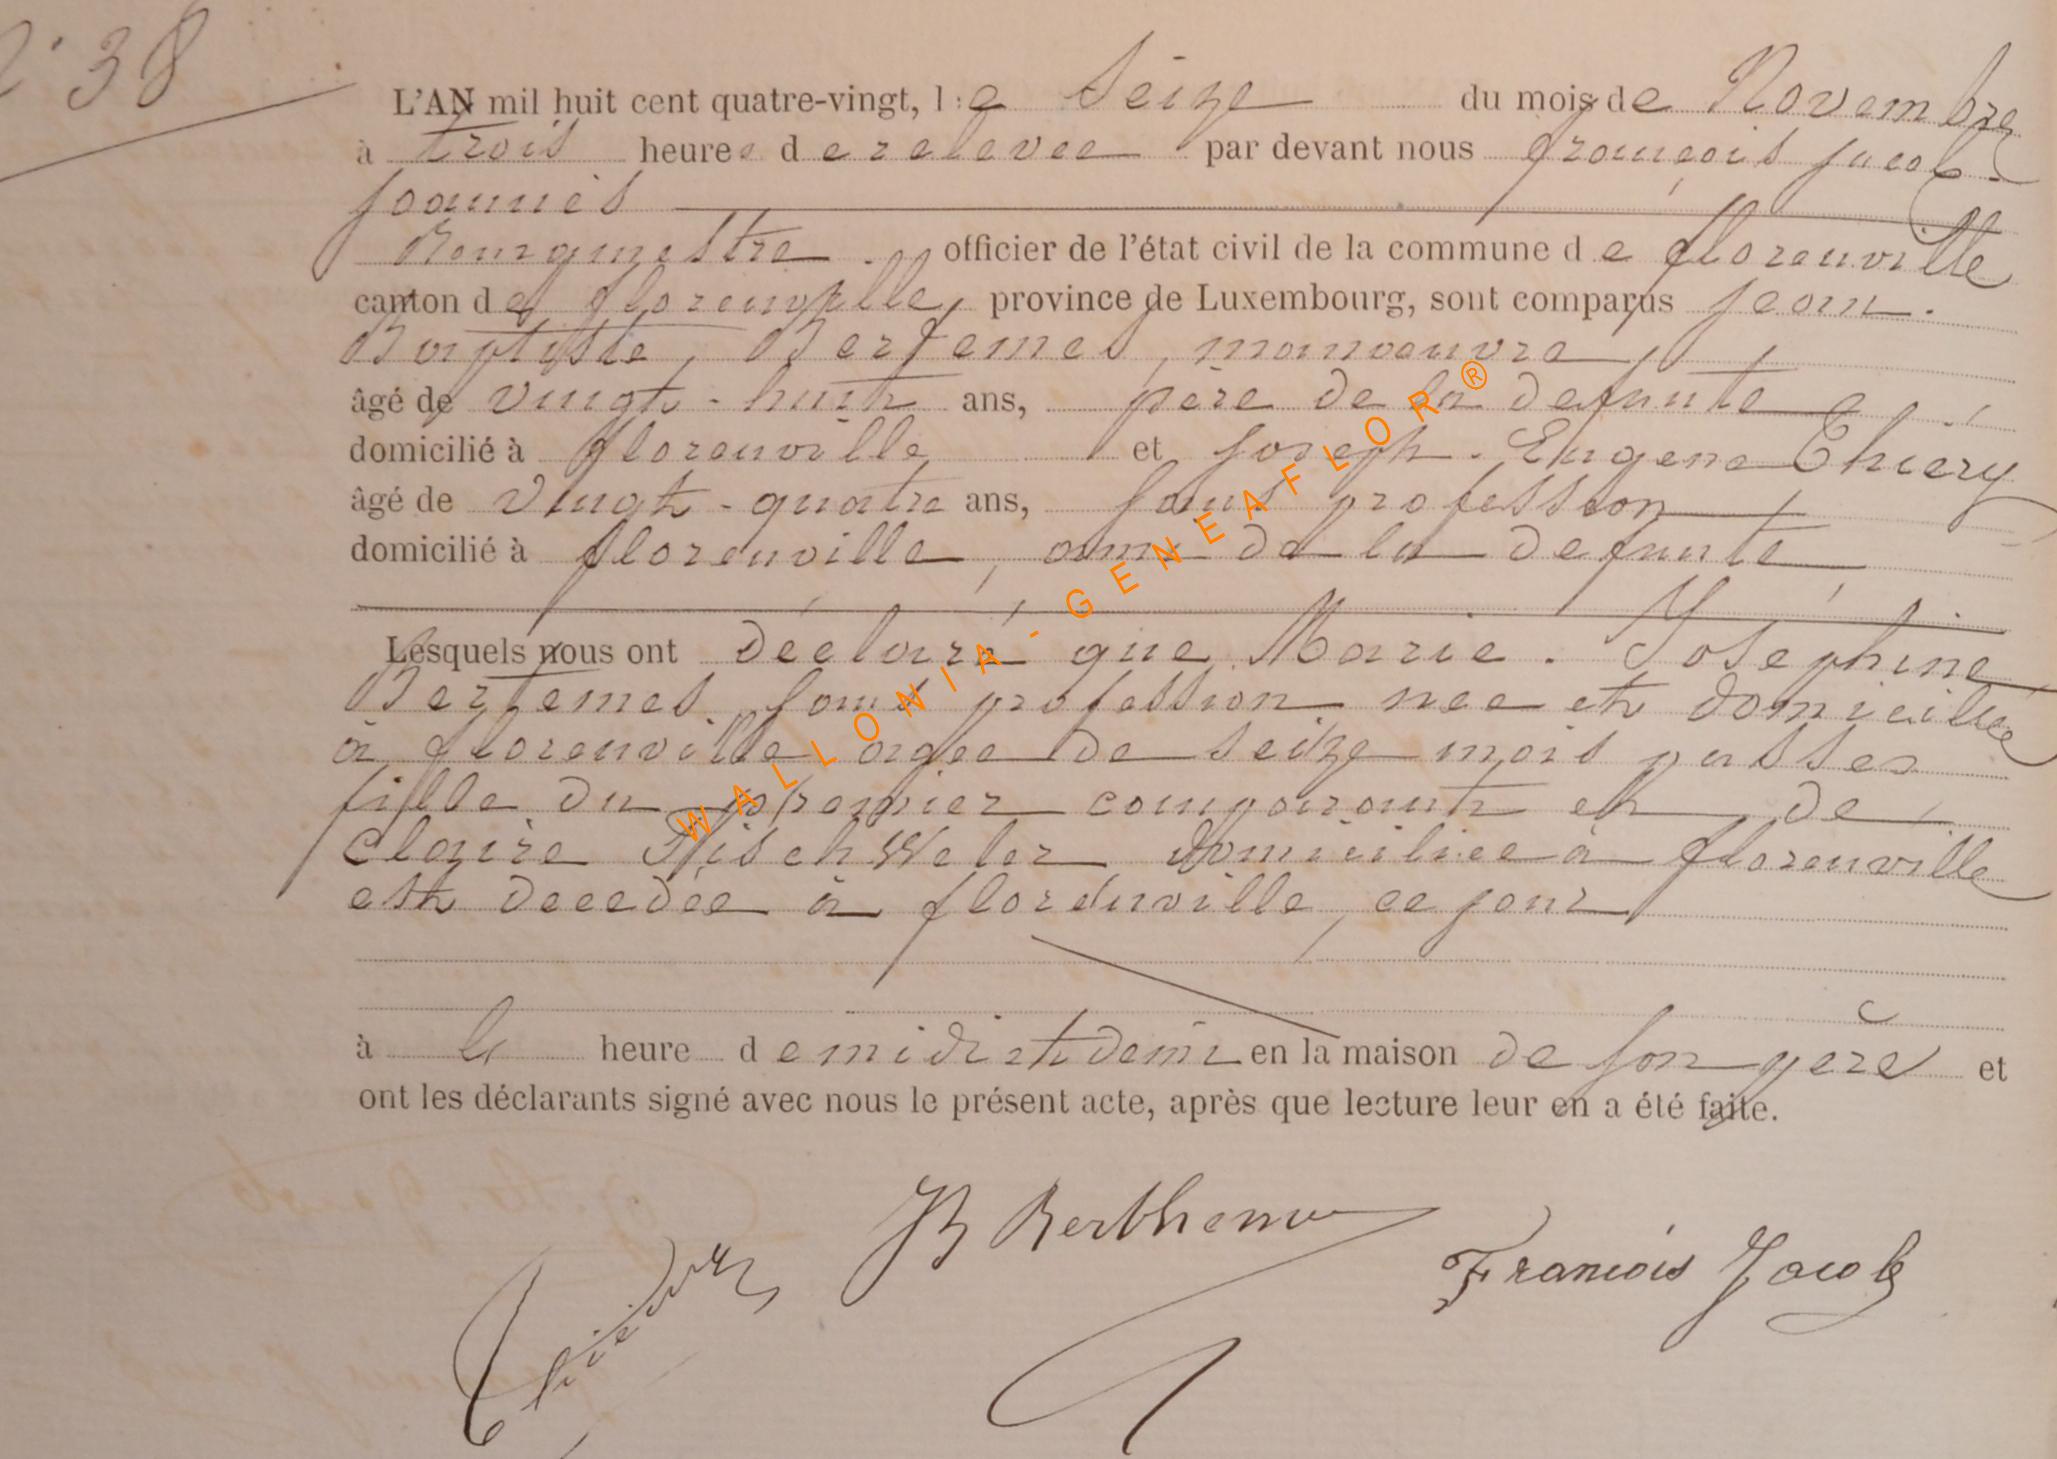 N° 38
L'AN mil huit cent quatre-vingt, le Seize du mois de Novembre
à trois heures de relevée par devant nous François Jacob-
Joannès
Bourgmestre officier de l'état civil de la commune de Florenville
canton de Florenville, province de Luxembourg, sont comparus Jean-
Baptiste Bertemes, manoeuvre
âgé de vingt-huit ans, père de la defunte
domicilié à Florenville et Joseph-Eugene Thiery
âgé de vingt-quatre ans, sans profession
domicilié à Florenville, ami de la defunte
Lesquels nous ont déclaré que Marie-Josephine
Bertemes, sans profession née et domiciliée
à Florenville agée de seize mois passés
fille du premier comparant et de
Claire domiciliée à Florenville
est decedée à Florenville, ce jour
à la heure de midi et demi en la maison de son père et
ont les déclarants signé avec nous le présent acte, après que lecture leur en a été faite.
JB Berthemes
François Jacob
WALLONIA-GENEAFLOR®